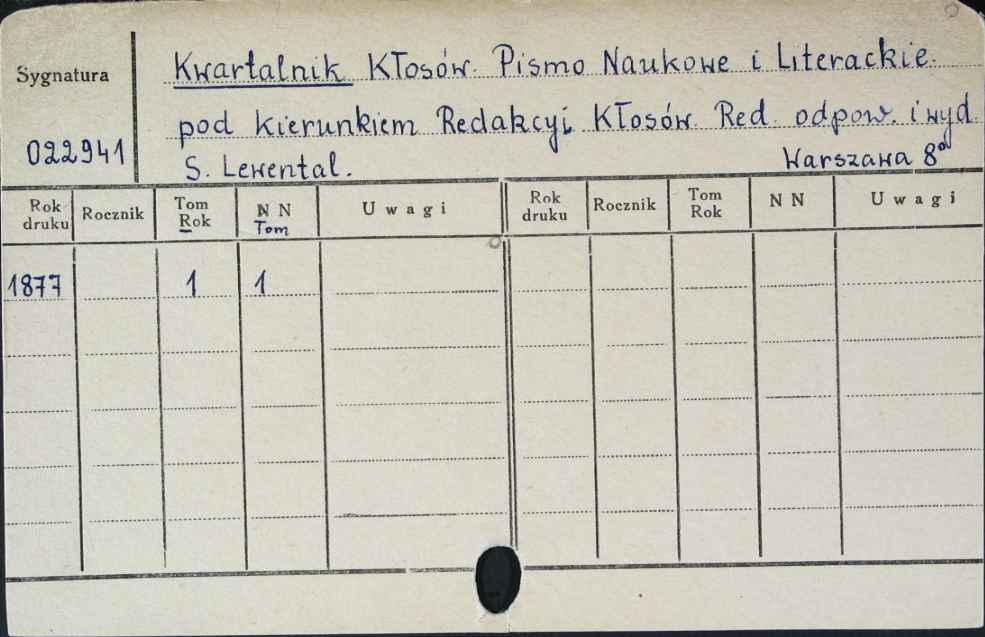 Sygnatura
Kwartalnik Kłosów. Pismo Naukowe i Literackie.
pod kierunkiem Redakcyi Kłosów. Red. odpow. i wyd.
022941
S. Lewental.
Warszawa 8°
Rok druku Rocznik Tom Rok N N Tom Uwagi Rok druku Rocznik Tom Rok N N Uwagi
1877 1 1